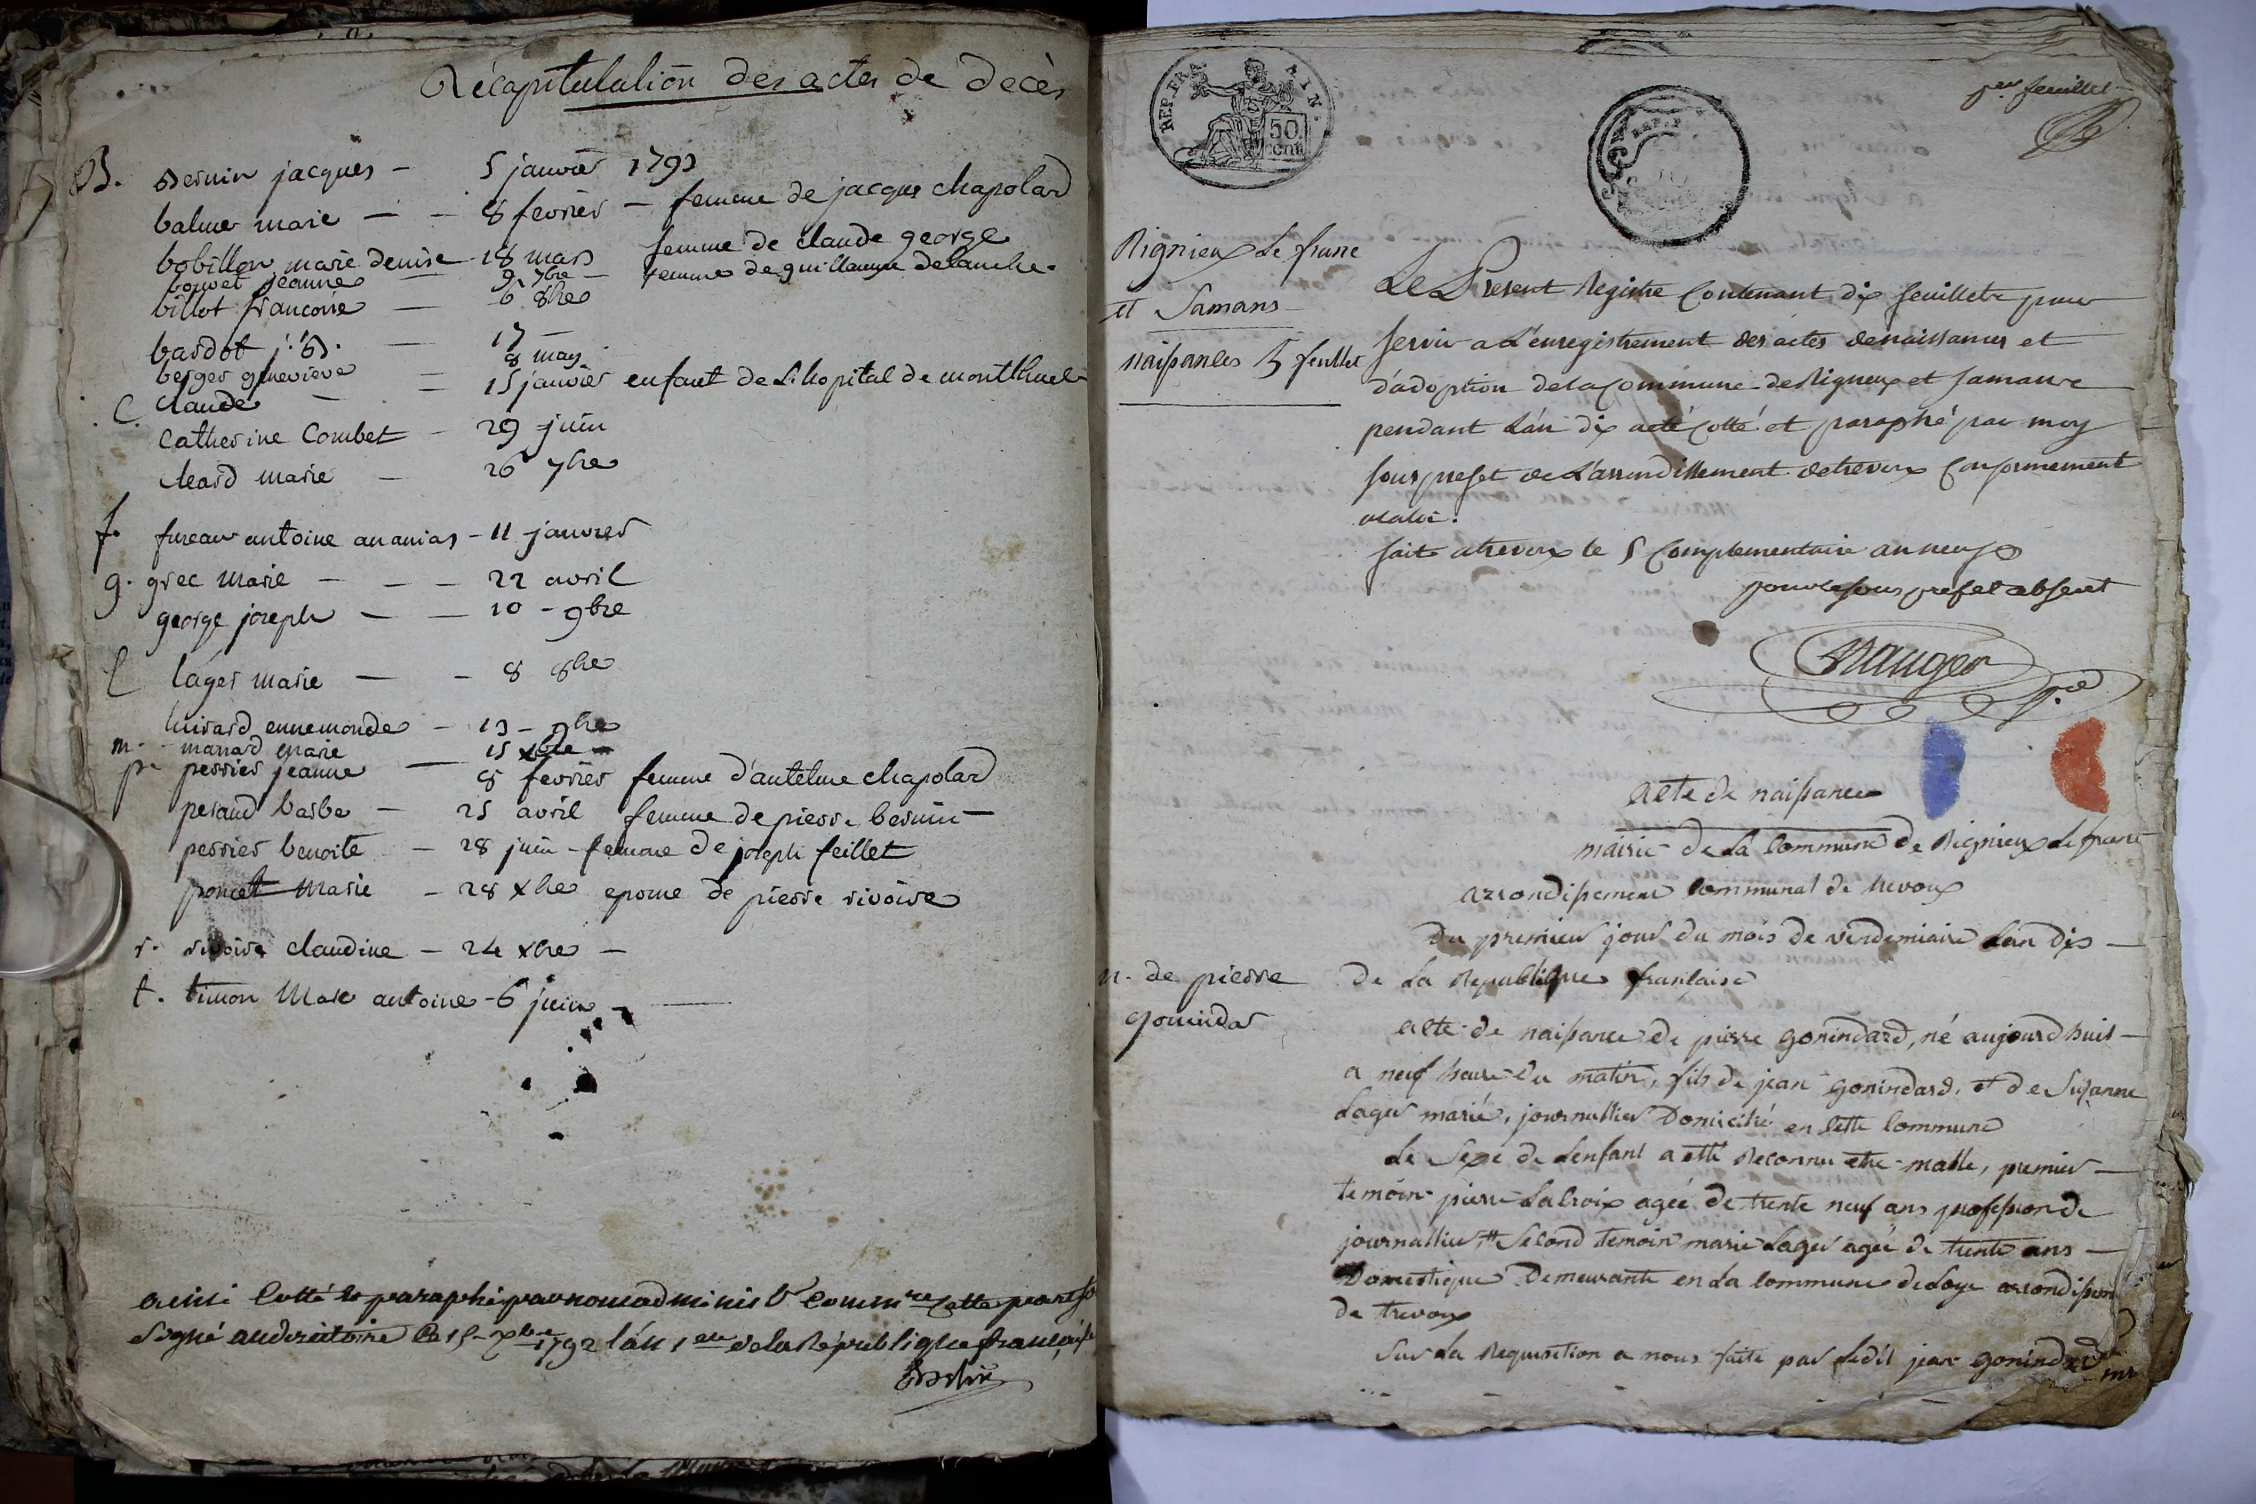 Récapitulation des actes de decès
B. Bernin jacques - 5 janvier 1793
balme marie - - 8 fevrier - femme de jacques chapolard
bobillon marie denise 18 mars femme de claude george
bouvet jeanne - 9 7bre - femme de guillaume delanche.
billot francoise - 6 8bre
bardot j. B. - 17 -
berger genevieve 8 may
C. claude - 15 janvier enfant de L'hopital de montluel
catherine Combet - 29 juin
cleard marie - 26 7bre
f. fureau antoine ananias - 11 janvier
g. grec marie - - - 22 avril
george joseph - - 10 - 9bre
l lager marie - - 8 8bre
luisard ennemonde - 13 - 9bre
m. manard marie 15 xbre
p. perrier jeanne - 8 fevrier femme d'antelme chapolard
peraud barbe - 25 avril femme de pierre bernin -
perrier benoite - 28 juin - femme de joseph feillet
poncet marie - 28 xbre epouse de pierre rivoire
r. rivoire claudine - 24 xbre -
t. timon Marc antoine - 6 juin -
Cotté et paraphé par nous administr. Comm.re
Signé au directoire Le 15 Xbre 1792 l'an 1er de la République française
REP. FRA. 50 cent.
REP.
1er feuillet
Rignieux Le franc
et Samans
naissances 5 feuillet
Le Present Registre Contenant dix feuillets pour
servir a L'enregistrement des actes denaissances et
d'adoption delacommune deRigneux et Samans
pendant L'an dix a eté Cotté et paraphé par moy
sous prefet de L'arrondissement detrevoux Conformement
alaloi.
fait atrevoux le 5 Complementaire an neuf
pour le sous prefet absent
acte de naissance
mairie de La Commune de Rignieux Le franc
arrondissement Communal de trevoux
Du premier jour du mois de vendemiaire Lan dis -
n. de pierre
gonindar
de La Republique francaise
acte de naissance de pierre gonindard, né aujourdhuit -
a neuf heure du matin, fils de jean gonindard, et de Suzanne
Lager marié, journallier Domicilié en Cette Commune
Le Sexe de Lenfant a etté Reconnu etre malle, premier -
temoin pierre Lacroix ageé de trente neuf ans profession de
journallier, Second temoin marie Lager ageé de trente ans -
Domestique Demeurante en La Commune deLoye
de trevoux
Sur La Requisition a nous faite par Ledit jean gonindard